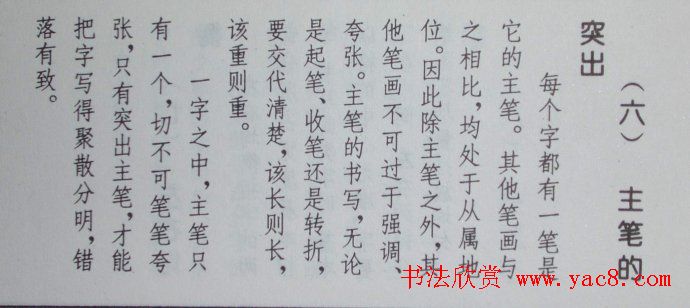 （六） 主笔的
突出
每个字都有一笔是
它的主笔。其他笔画与
之相比，均处于从属地
位。因此除主笔之外，其
他笔画不可过于强调、
夸张。主笔的书写，无论
是起笔、收笔还是转折，
要交代清楚，该长则长，
该重则重。
一字之中，主笔只
有一个，切不可笔笔夸
张，只有突出主笔，才能
把字写得聚散分明，错
落有致。
书法欣赏 www.yac8.com